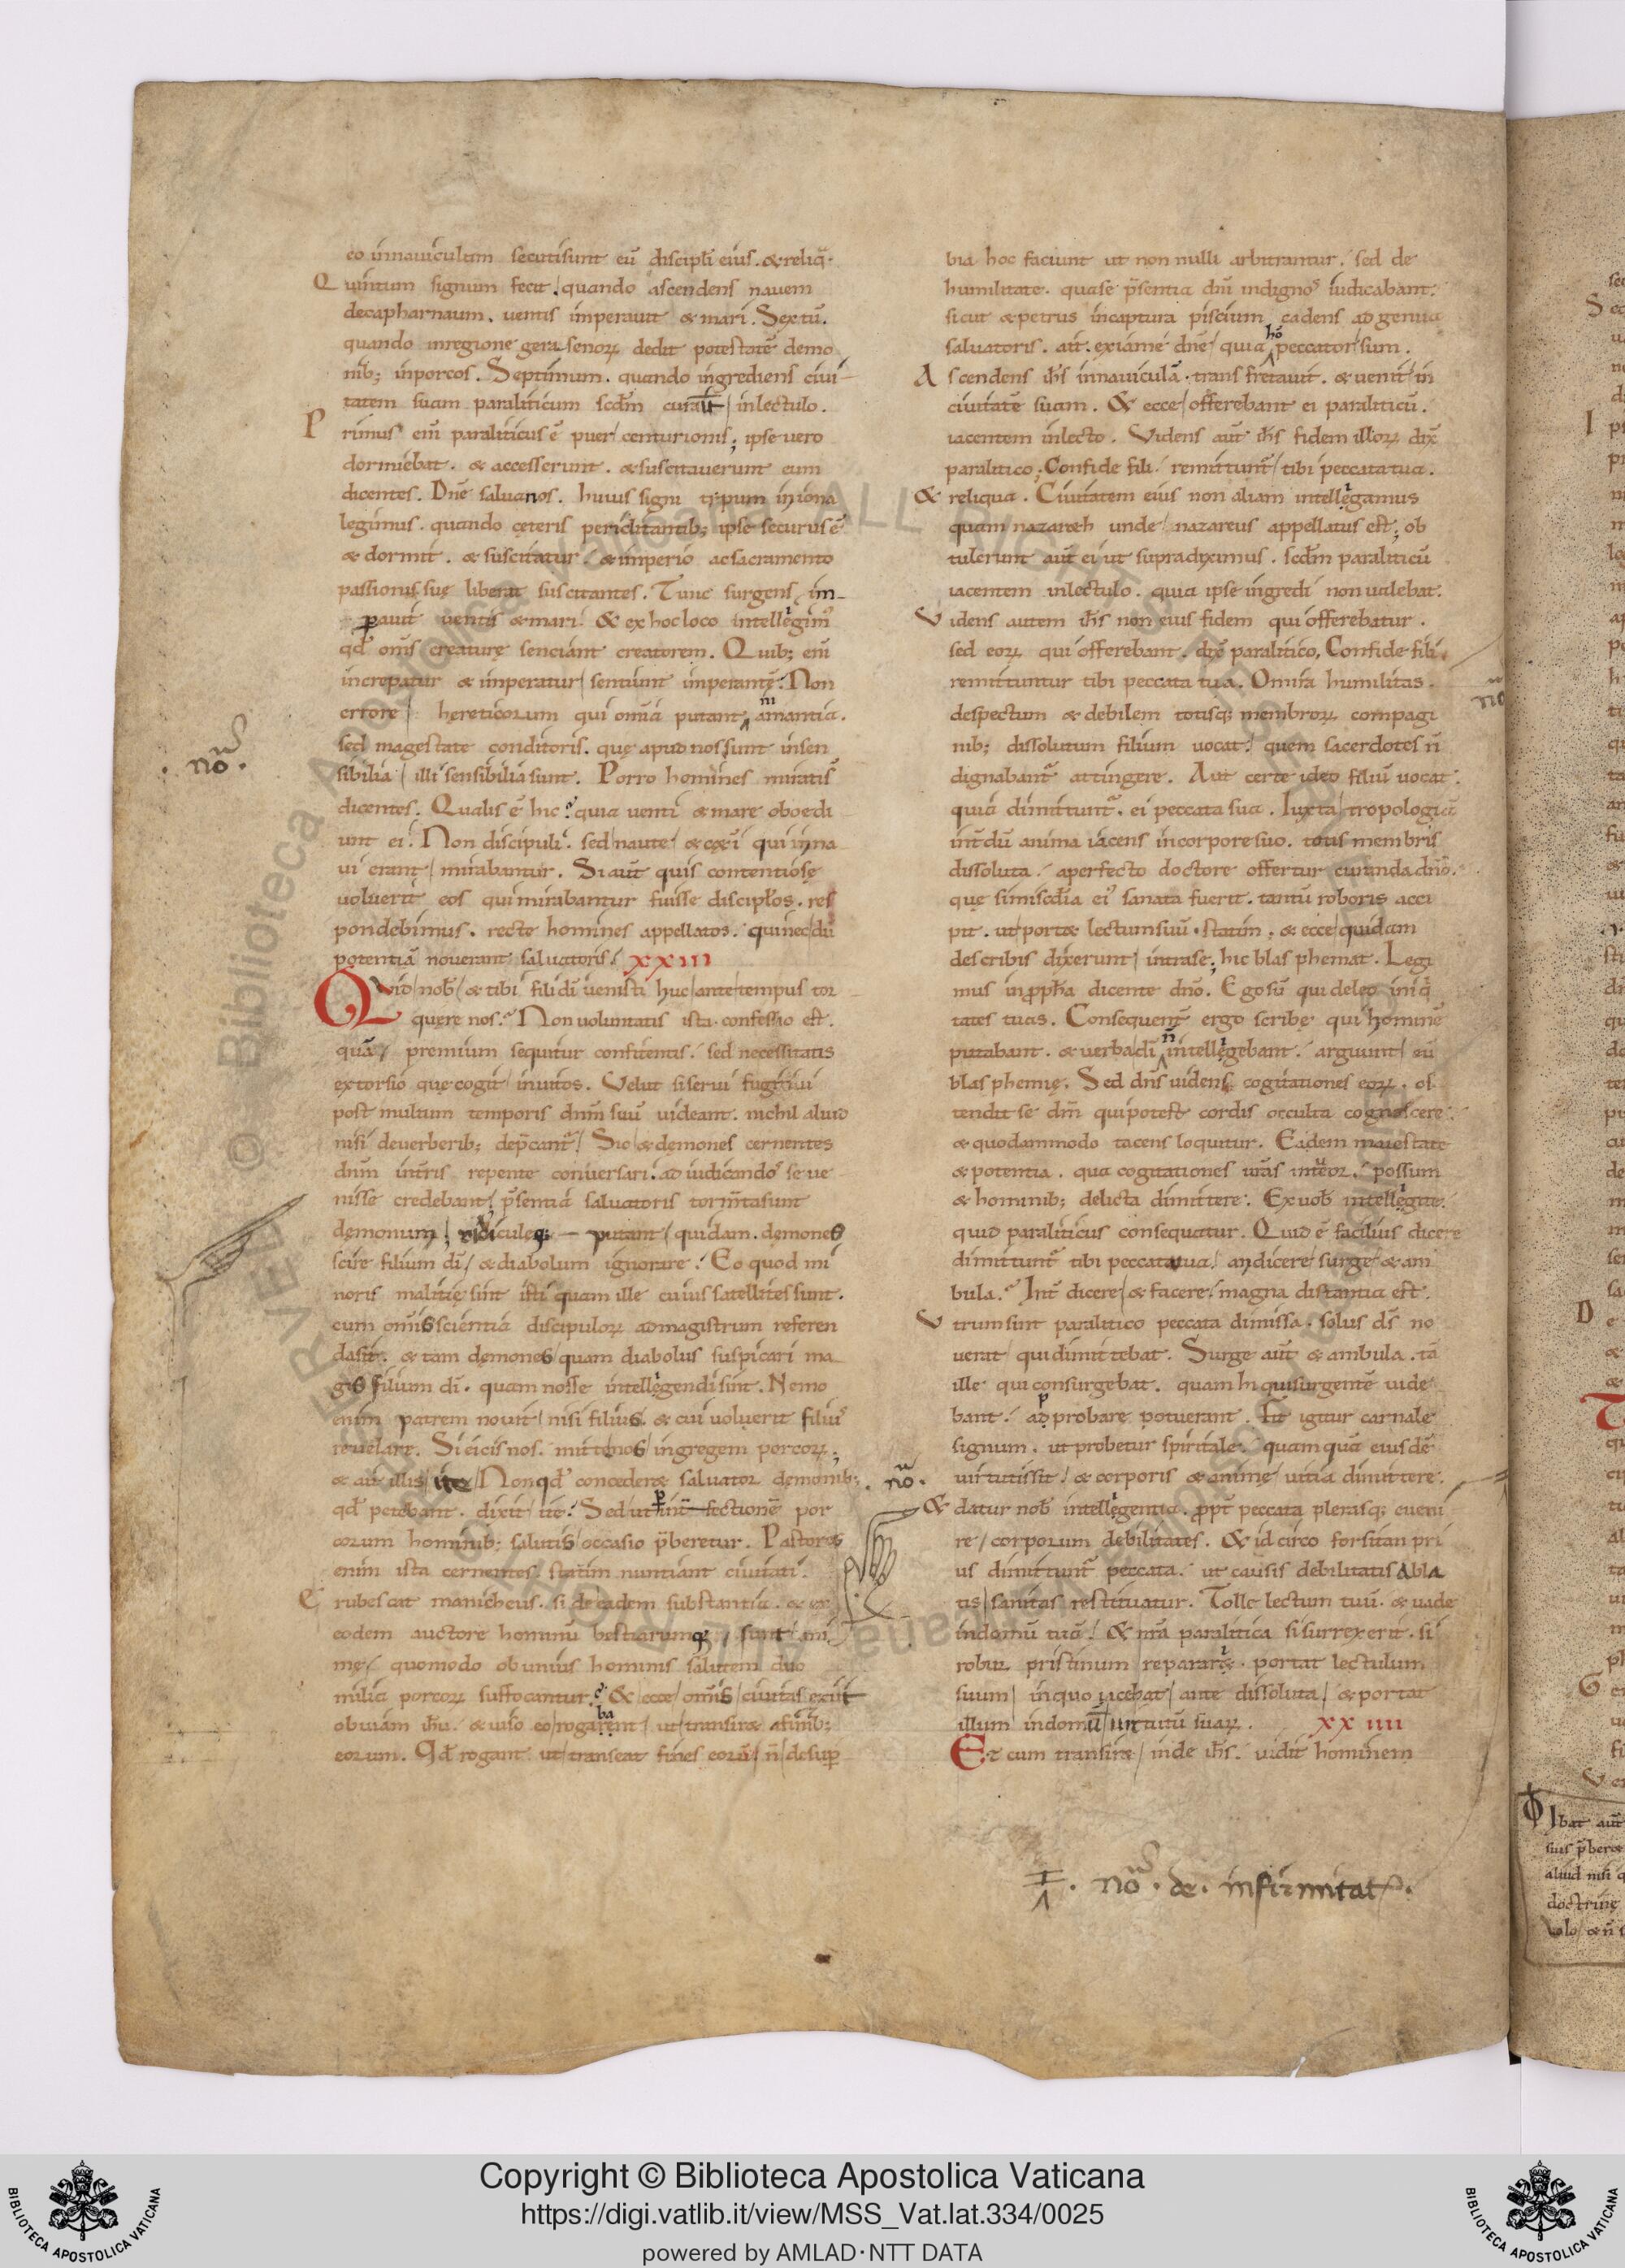 eo innauiculum secutisunt eū discipłi eius. &reliq̄.
Quintum signum fecit. quando ascendens nauem
decapharnaum. uentis imperauit & mari. Sextū.
quando inregione gerasenoꝝ dedit potestatē demo
nib; inporcos. Septimum. quando ingrediens ciui-
tatem suam paraliticum scd̄m curauit inlectulo.
Primus eni paraliticus ē puer centurionis; ipse uero
dormiebat. & accesserunt. &suscitauerunt eum
dicentes. Dn̄e saluanos. huius signi typum iniona
legimus. quando ceteris periclitantib; ipse securus ē
& dormit. & suscitatur. & imperio acsacramento
passionis suę liberat suscitantes. Tunc surgens im-
pauit uentis &mari. & ex hoc loco intelligim'
qđ om̄s creaturę senciant creatorem. Quib; eni
increpatur & imperatur sentiunt imperantē. Non
errore hereticorum qui om̄ia putant amantia.
m
sed magestate conditoris. quę apud nos sunt insen
nō.
sibilia illi sensibilia sunt. Porro homines miratis̄
dicentes. Qualis ē hic? quia uenti & mare oboedi
unt ei. Non discipuli. sed naute & cęt̄i qui inna
ui erant mirabantur. Si aut̄ quis contentiosę
uoluerit eos qui mirabantur fuisse discipłos. res
pondebimus. recte homines appellatos. quinec dū
potentiā nouerant saluatoris. xxiii
Quid nob̄ & tibi fili dī uenisti huc ante tempus tor
quere nos. Non uoluntatis ista confessio est.
quā premium sequitur confitentis. sed necessitatis
extorsio quę cogit inuitos. Velut si serui fugitiui
post multum temporis dnm̄ suū uideant. nichil aliud
nisi deuerberib; dep̄cant̄. Sic & demones cernentes
dnm̄ int̄ris repente conuersari. ad iudicando' se ue
nisse credebant. p̄sentia saluatoris torm̄tasunt
demonum ridicule putant quidam. demones
scire filium dī. & diabolum ignorare. Eo quod mi
noris malitię sint isti quam ille cuius satellites sunt.
cum om̄is scientia discipuloꝝ admagistrum referen
dasit. & tam demones quam diabolus suspicari ma
gis filium dī. quam nosse intelligendi sint. Nemo
enim patrem nouit nisi filius. & cui uoluerit filius
reuelare. Si eicis nos. mitte nos ingregem porcoꝝ;
& ait illis ite. Non qđ concederet saluator demonib;
qđ petebant. dixit ite. Sed ut int̄fectionē por
corum hominib; salutis occasio p̄beretur. Pastores
enim ista cernentes. statim nuntiant ciuitati.
Erubescat manicheus. si de eadem substantia. & ex
eodem auctore hominū bestiarumq; sunt ani
mę. quomodo ob unius hominis salutem duo
milia porcoꝝ suffocantur. & ecce om̄is ciuitas exiit
obuiam iħu. & uiso eo rogarent ut transiret afinib;
ba
eorum. Qđ rogant ut transeat fines eorū n̄ desup̱
bia hoc faciunt ut non nulli arbitrantur. sed de
humilitate. qua se p̄sentia dnī indignos iudicabant.
sicut & petrus incaptura piscium cadens ad genua
saluatoris. ait. exiame dn̄e quia peccator sum.
hō
Ascendens iħs innauiculā. trans fretauit. & uenit in
ciuitatē suam. & ecce offerebant ei paraliticū.
iacentem inlecto. Videns aut̄ iħs fidem illoꝝ dix̄
paralitico; Confide fili. remittunt̄ tibi peccata tua.
& reliqua. Ciuitatem eius non aliam intelligamus
quam nazareth unde nazareus appellatus est; ob
tulerunt aut̄ ei ut supradiximus. scd̄m paraliticū
iacentem inlectulo. quia ipse ingredi non ualebat.
Videns autem iħs non eius fidem qui offerebatur.
sed eoꝝ qui offerebant. dix̄ paralitico. Confide fili.
remittuntur tibi peccata tua. O mira humilitas.
nō
despectum & debilem totisq; membroꝝ compagi
nib; dissolutum filium uocat. quem sacerdotes n̄
dignabant̄ attingere. Aut certe ideo filiū uocat.
quia dimittunt̄. ei peccata sua. Iuxta tropologiā
int̄dū anima iacens incorpore suo. totis membris
dissoluta. aperfecto doctore offertur curanda dnō.
que si misc̄dia ei' sanata fuerit. tantū roboris acci
pit. ut portet lectum suū. statim. & ecce quidam
describis dixerunt intrase; hic blasphemat. Legi
mus in ꝓph̄a dicente dnō. Ego sū qui deleo iniq̄
tates tuas. Consequent̄ ergo scribę qui hominē
putabant. & uerba dī intelligebant. arguunt eū
n̄
blasphemię. Sed dns̄ uidens cogitationes eoꝝ. os
tendit se dm̄ qui potest cordis occulta cognoscere.
& quodammodo tacens loquitur. Eadem maiestate
& potentia. qua cogitationes ur̄as intueor. possum
& hominib; delicta dimittere. Ex uob̄ intelligite.
quid paraliticus consequatur. Quid ē facilius dicere
dimittunt̄ tibi peccata tua. an dicere surge & am
bula. Int̄ dicere & facere magna distantia est.
Vtrum sint paralitico peccata dimissa. solus ds̄ no
uerat qui dimittebat. Surge aut̄ & ambula. tā
ille qui consurgebat. quam hi qui surgentē uide
bant. adprobare potuerant. Fit igitur carnale
p
signum. ut probetur spiritale. quam quā eiusdē
nō.
uirtutis sit. & corporis & animę uitia dimittere.
& datur nob̄ intelligentia. ꝓpt̄ peccata plerasq; eueni
re corporum debilitates. & id circo forsitan pri
us dimittunt̄ peccata. ut causis debilitatis abla
tis sanitas restituatur. Tolle lectum tuū. & uade
indomū tuā. & nr̄a paralitica si surrexerit. si
robur pristinum reparauit. portat lectulum
suum inquo iacebat ante dissoluta. & portat
illum indomū uirtutū suaꝝ. xxiiii
Et cum transiret inde iħs. uidit hominem
nō. de. infirmitate.
Copyright © Biblioteca Apostolica Vaticana
https://digi.vatlib.it/view/MSS_Vat.lat.334/0025
powered by AMLAD·NTT DATA